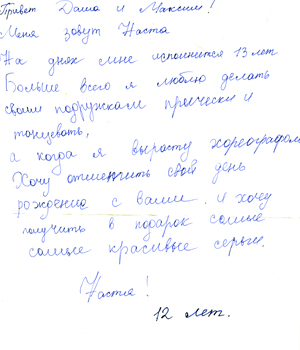 Привет Даша и Максим!
Меня зовут Настя
На днях мне исполнится 13 лет
Больше всего я люблю делать
своим подружкам причёски и
танцевать,
а когда я вырасту хореографом
Хочу отметить свой день
рождение с вами и хочу
получить в подарок самые
самые красивые серьги.
Настя!
12 лет.